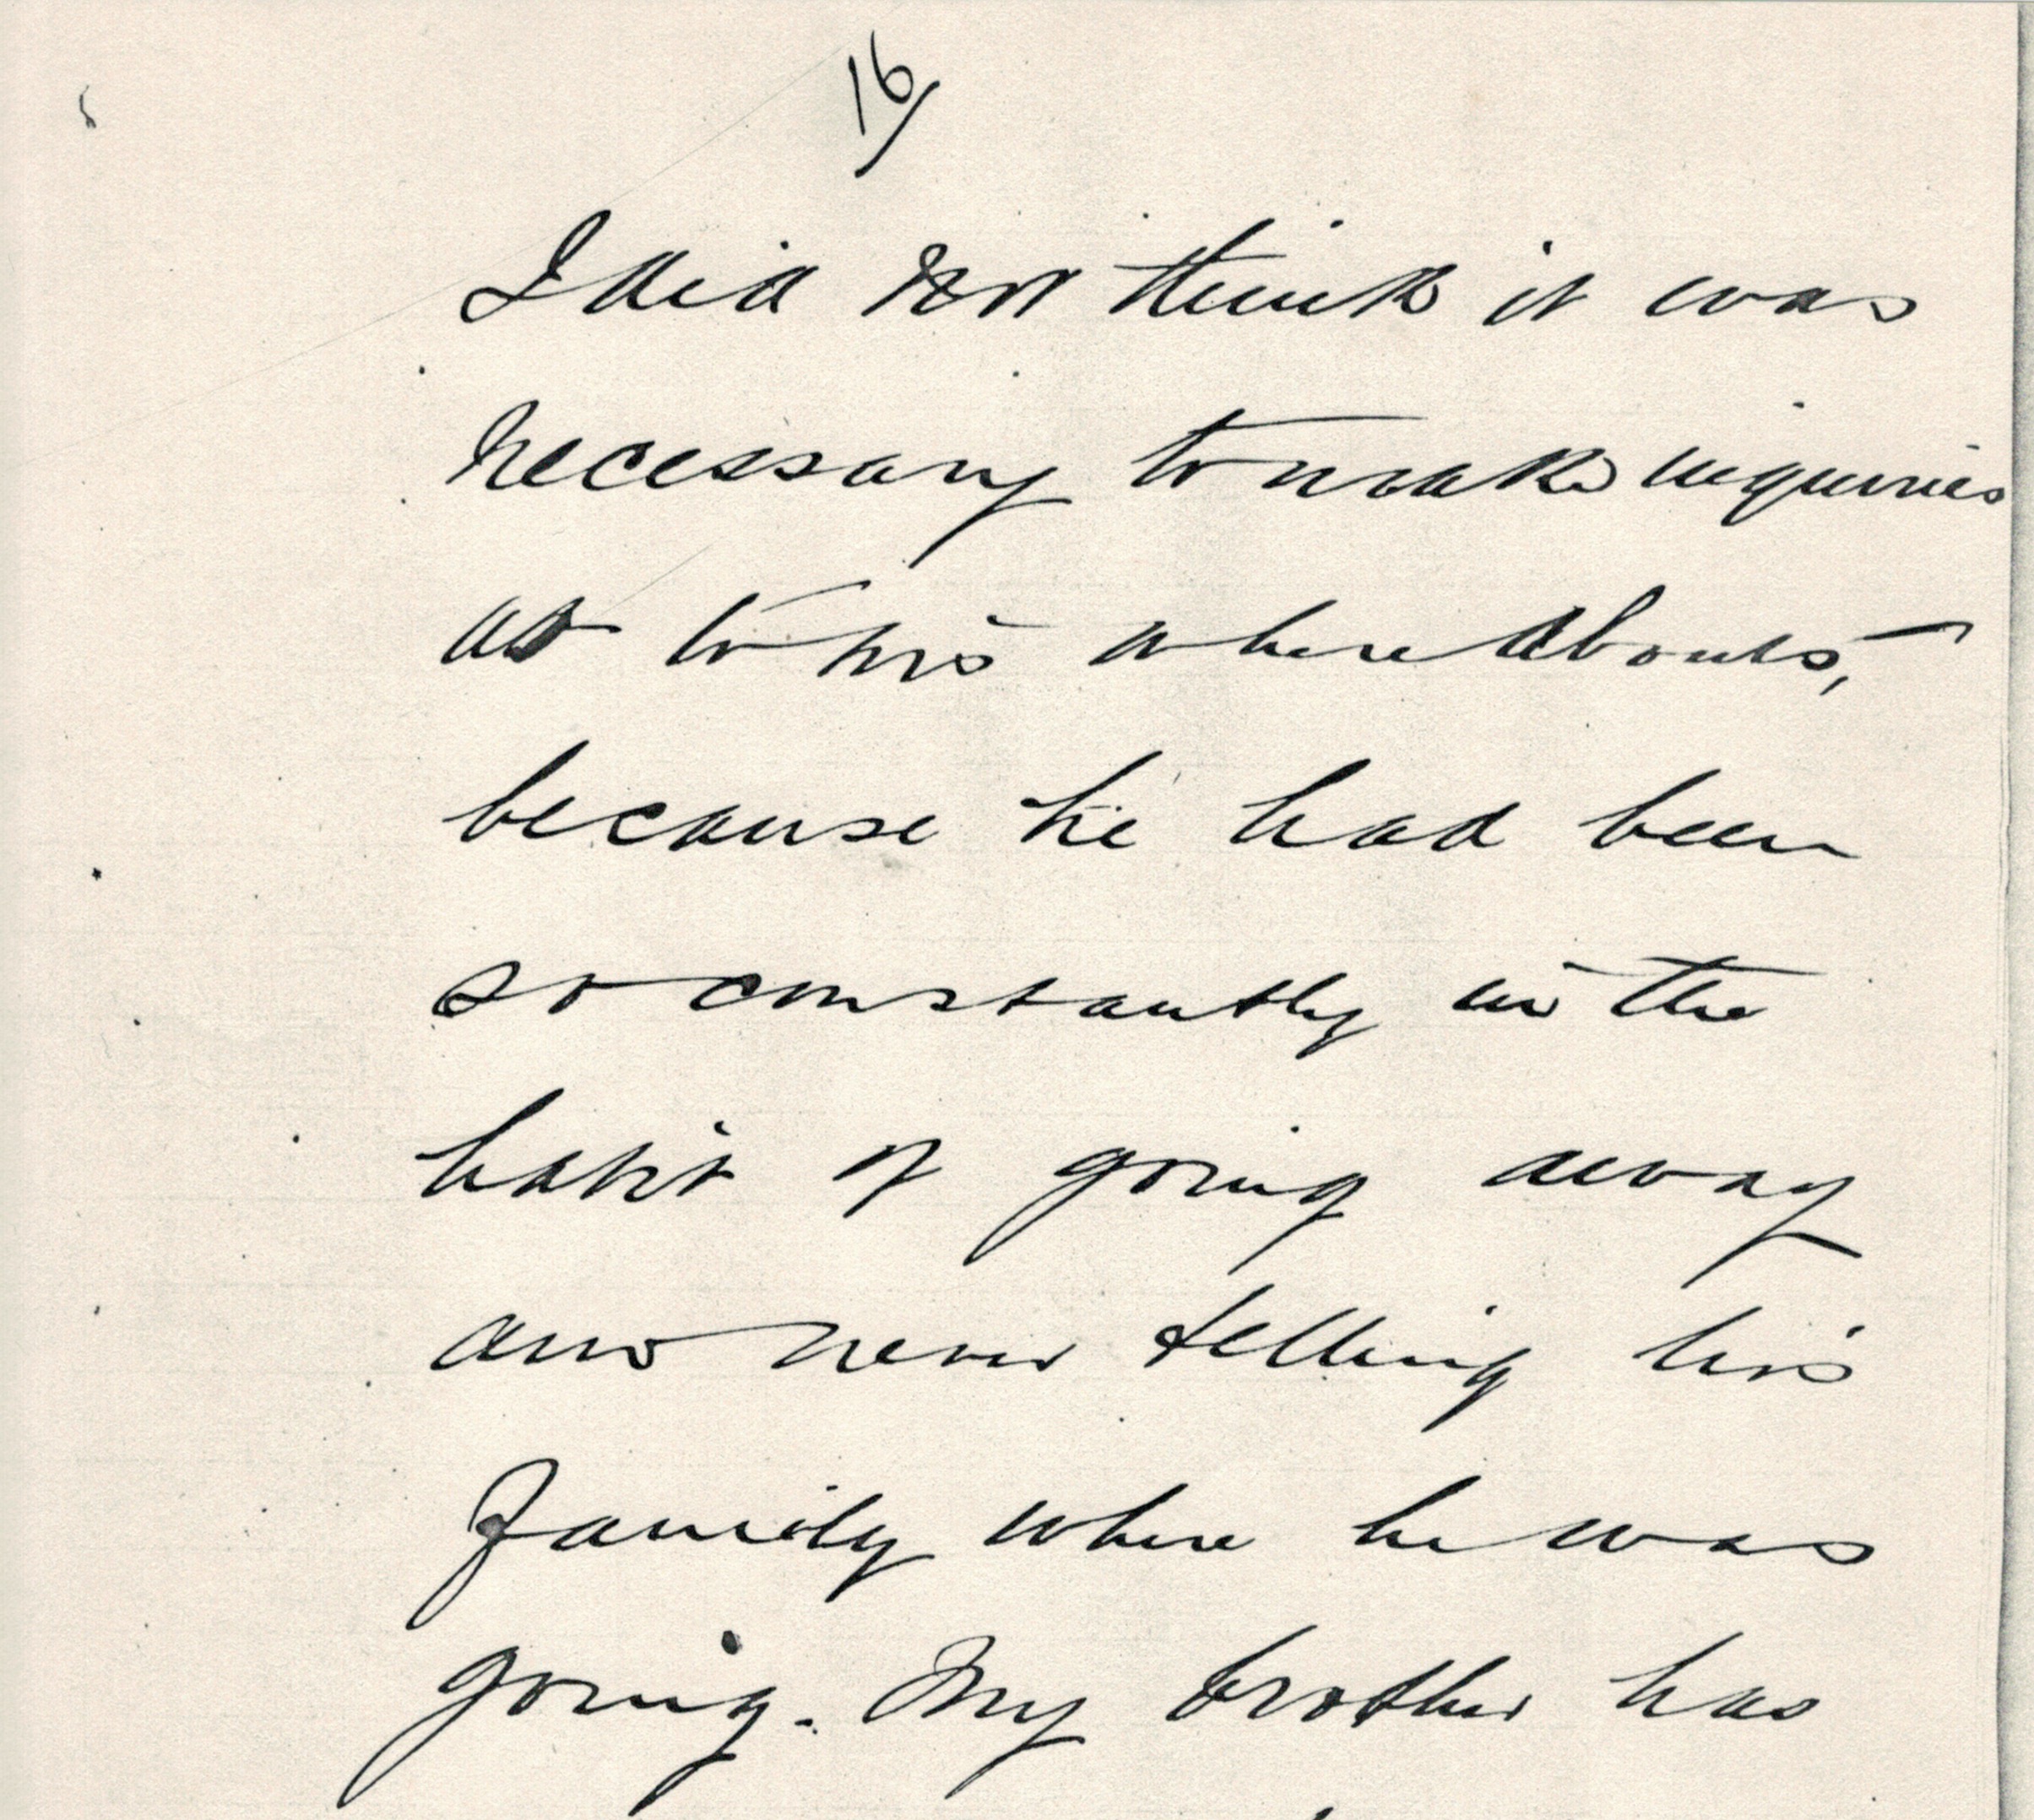 16/
I did not think it was
necessary to make inquiries
as to his whereabouts,
because he had been
so constantly in the
habit of going away
and never telling his
family where he was
going. My brother has